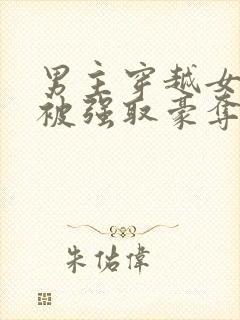 男主穿越女
被强取豪夺
朱佑偉